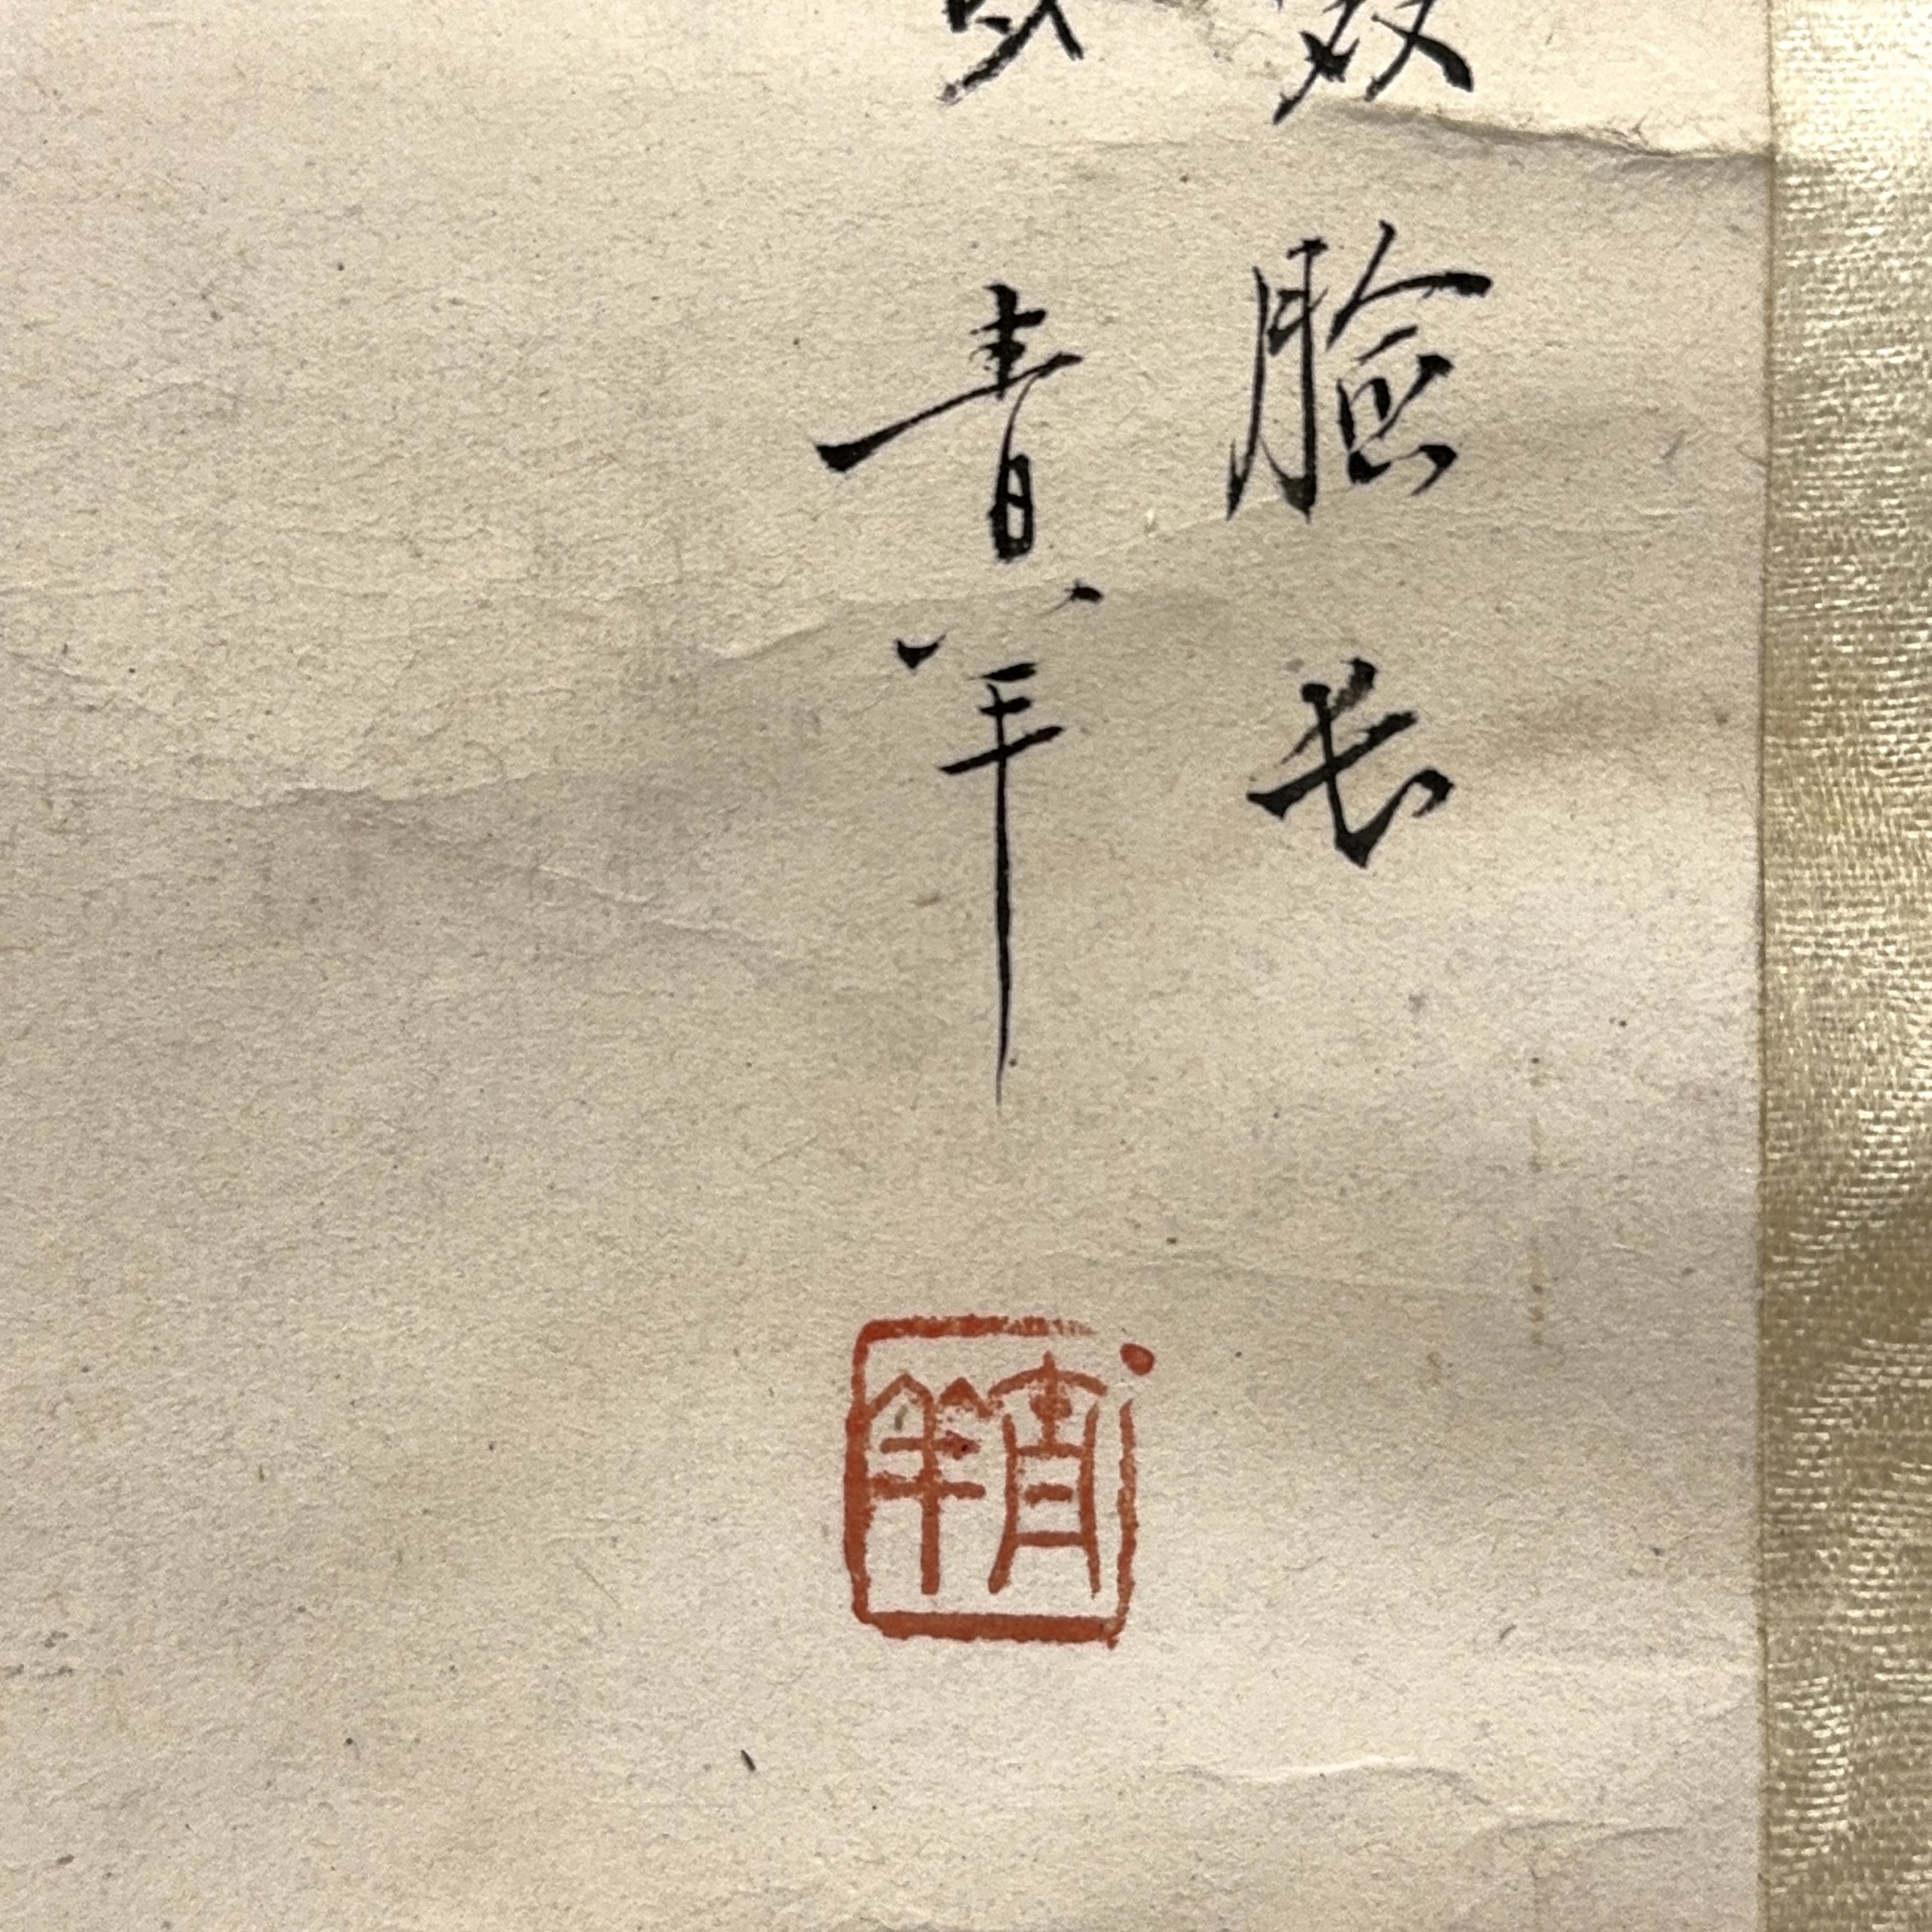 臉长
青羊
青羊